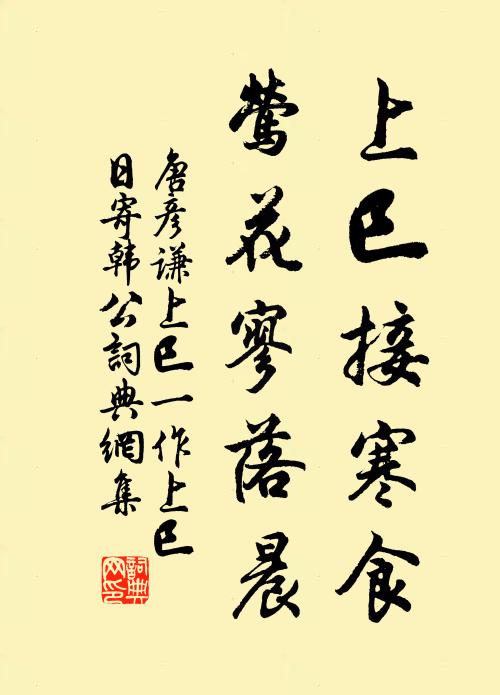 上巳接寒食
鶯花寥落晨
唐彥謙上巳一作上巳
日寄韓公詞典網集
詞典
网印